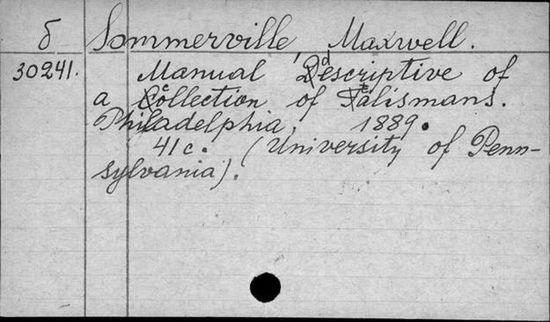 б Sommerville, Maxwell.
30241. Manual descriptive of
a collection of talismans.
Philadelphia, 1889.
41 c. (University of Penn-
sylvania).